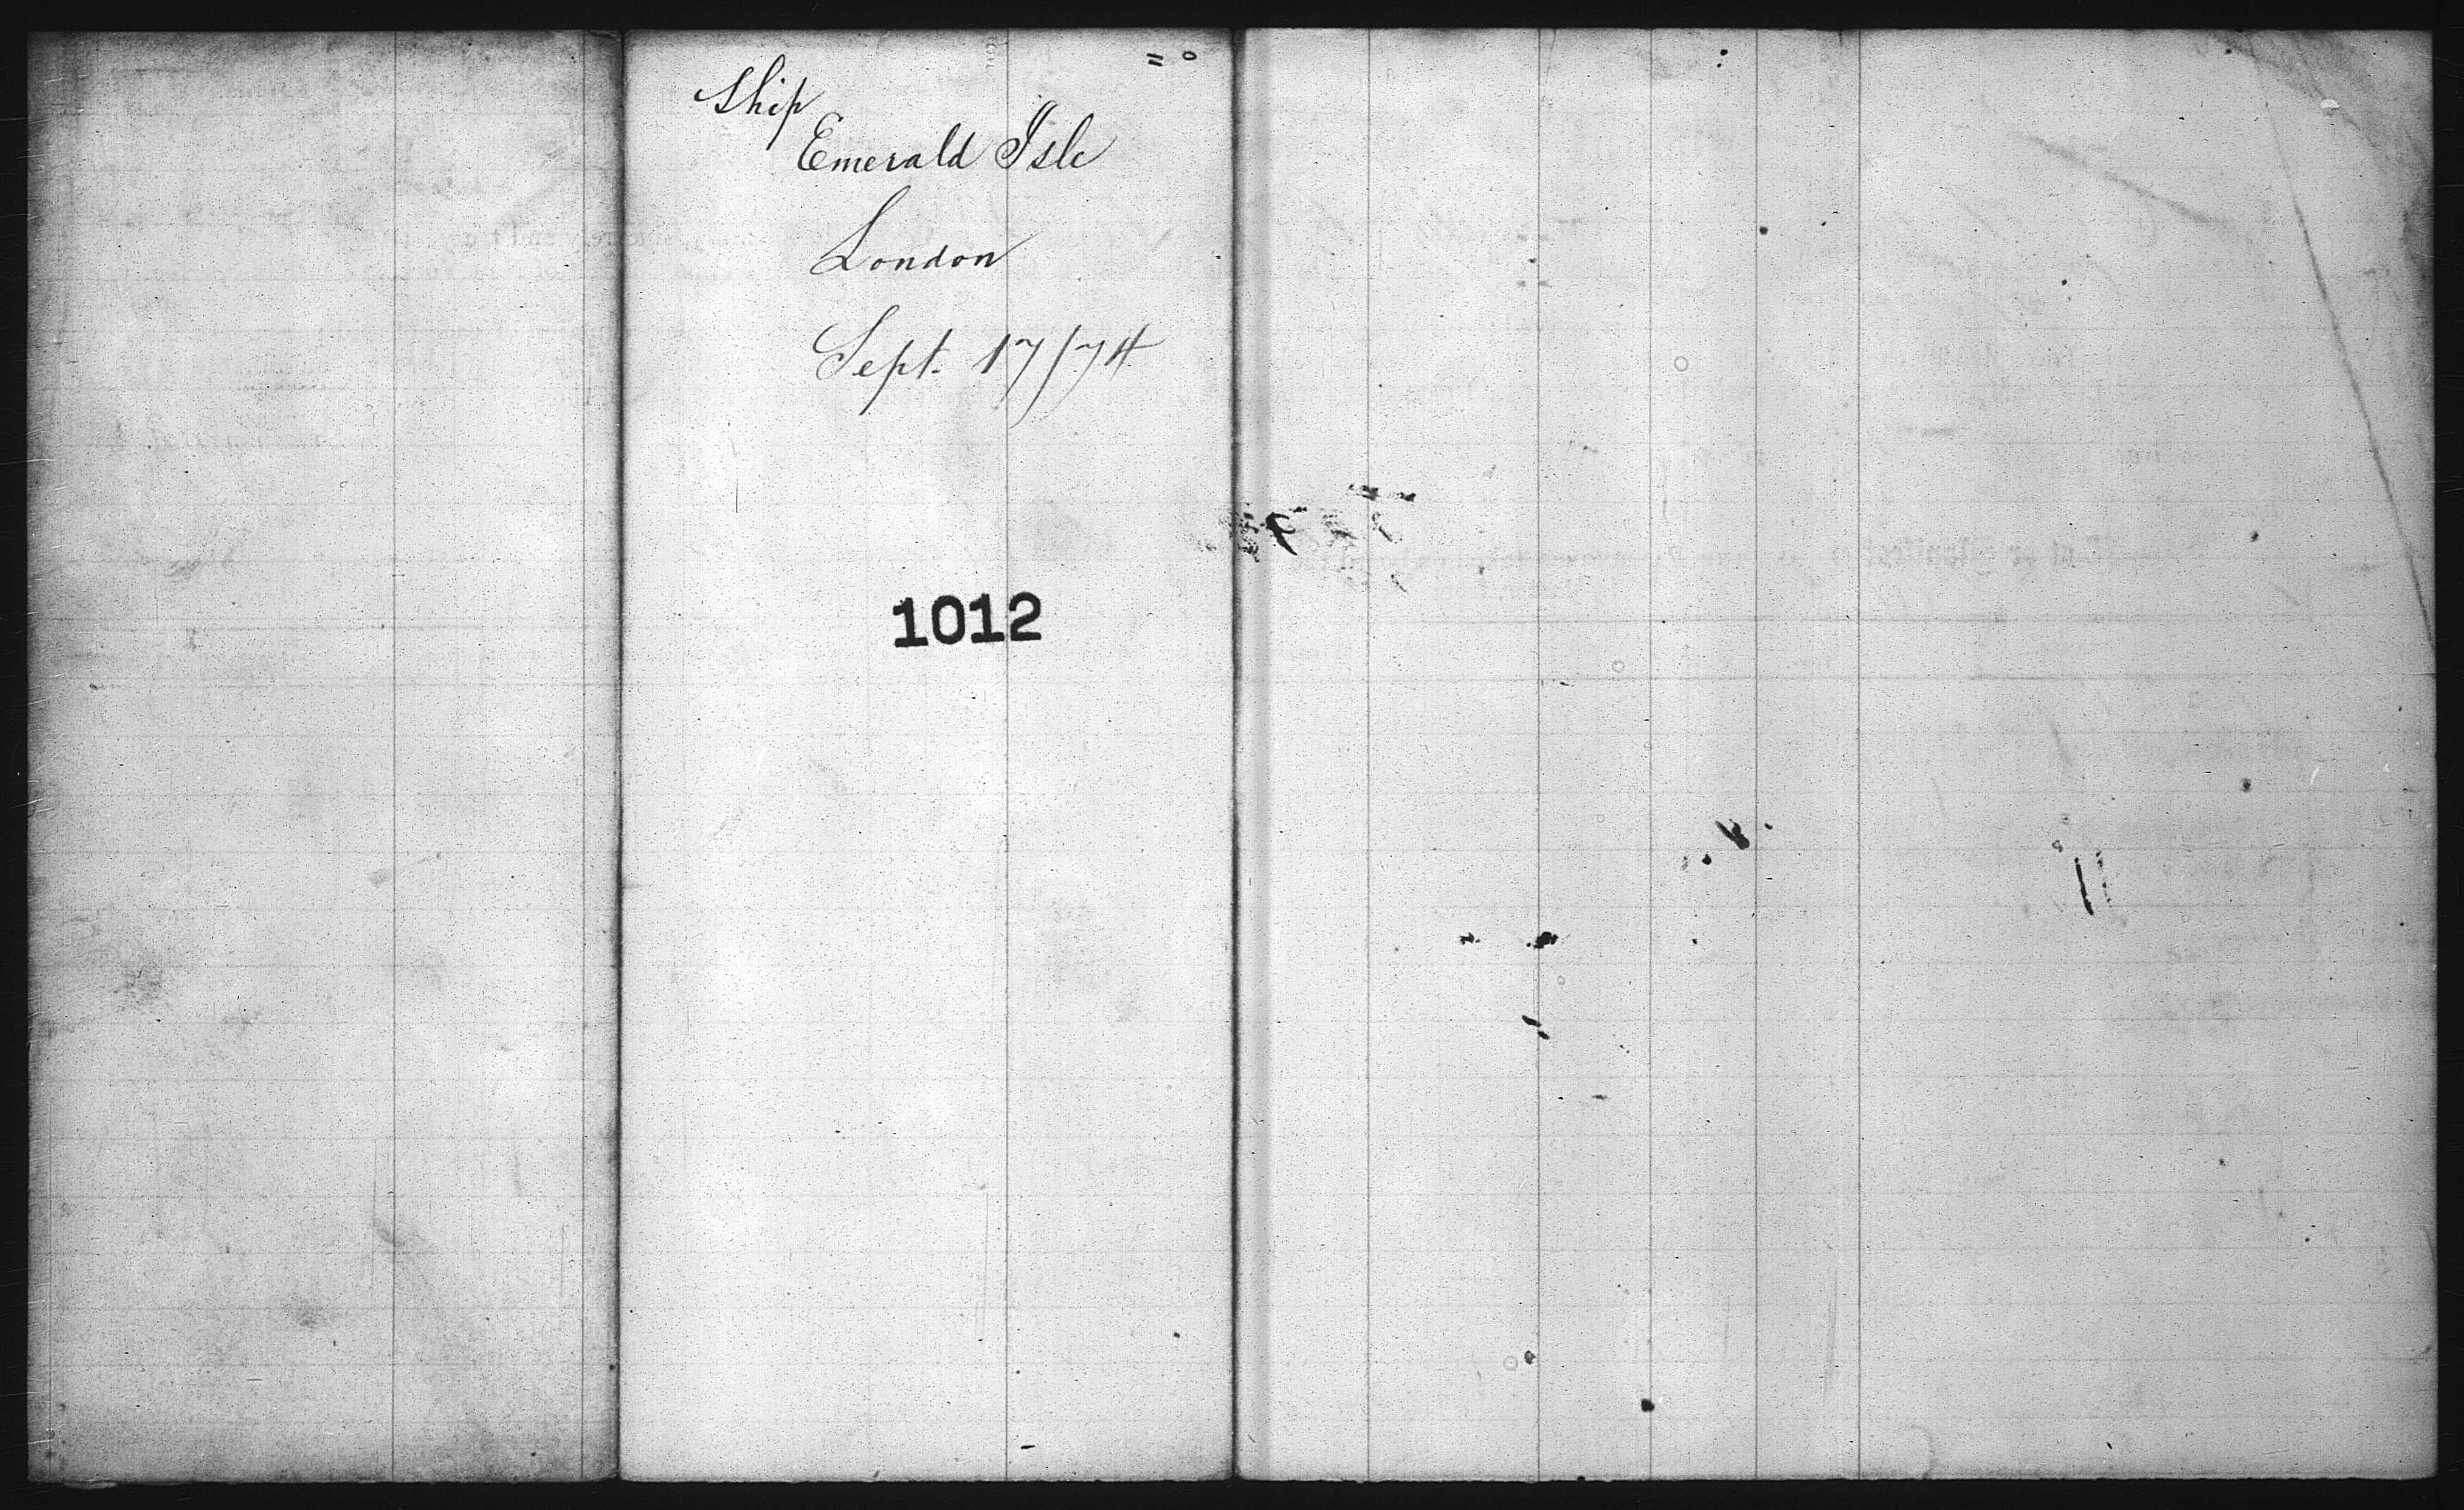 Ship
Emerald Isle
London
Sept. 17/74
1012